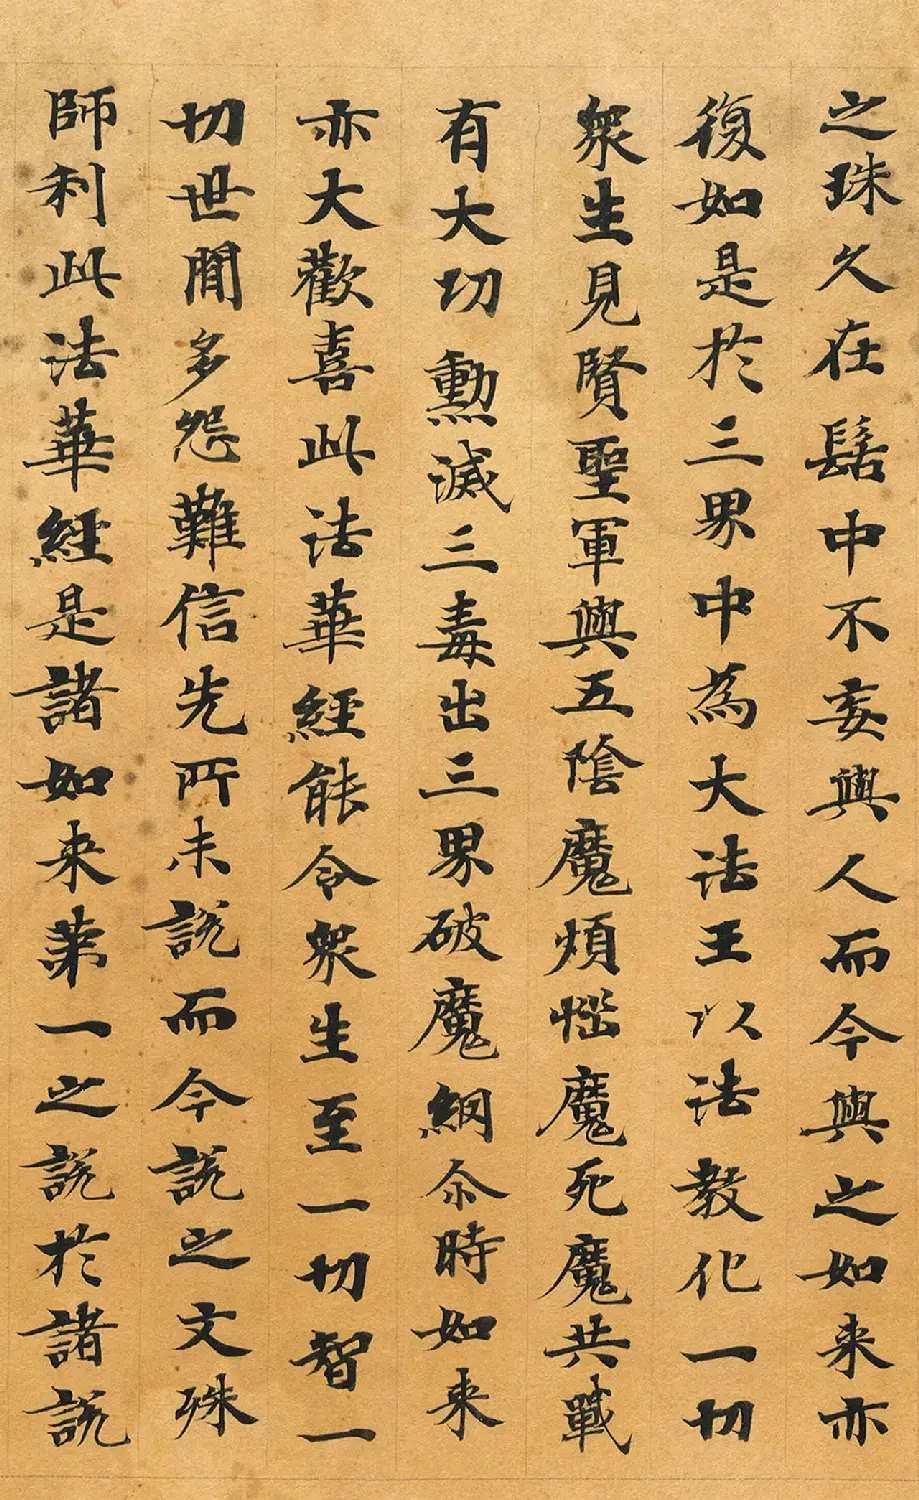 之珠久在髻中不妄與人而今與之如来亦
復如是於三界中為大法王以法教化一切
衆生見賢聖軍與五陰魔煩惱魔死魔共戰
有大功勲滅三毒出三界破魔網尒時如来
亦大歡喜此法華經能令衆生至一切智一
切世間多怨難信先所未說而今說之文殊
師利此法華經是諸如来第一之說於諸說